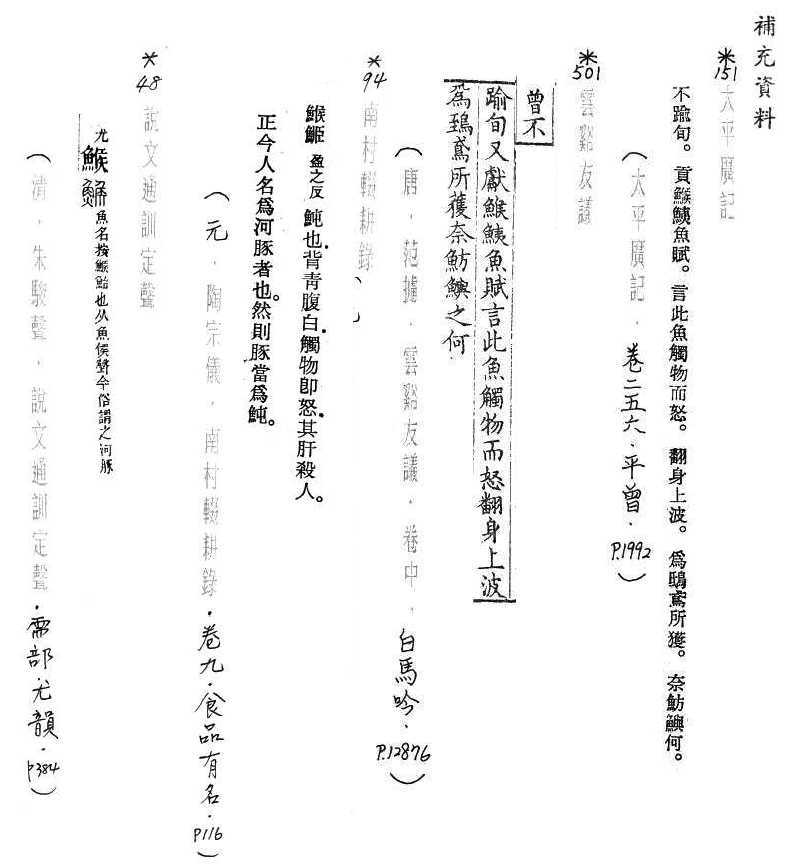 補充資料
*151
太平廣記
不踰旬。貢鯸鮧魚賦。言此魚觸物而怒。翻身上波。為鴟鳶所獲。奈魴鱮何。
(太平廣記．卷二五六．平曾．P.1992)
*501
雲谿友議
曾不
踰旬又獻鯸鮧魚賦言此魚觸物而怒翻身上波
為鵄鳶所獲奈魴鱮之何
(唐．范攄．雲谿友議．卷中．白馬吟．P.12876)
*94
南村輟耕錄
鯸䱌盈之反魨也背青腹白觸物卽怒其肝殺人。
正今人名為河豚者也。然則豚當為魨。
(元．陶宗儀．南村輟耕錄．卷九．食品有名．P116)
*48
說文通訓定聲
尤
鯸
魚名按鯸鮐也从魚侯聲今俗謂之河豚
(清．朱駿聲．說文通訓定聲．需部尤韻．P384)